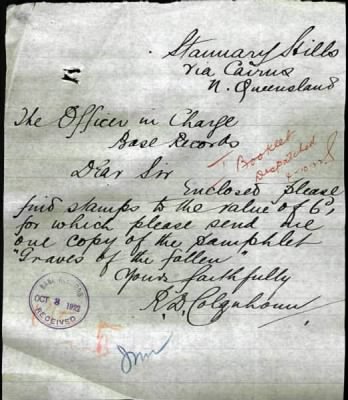 Stannary Hills
via Cairns
N. Queensland
The Officer in Charge
Base Records
Booklet
Despatched
Dear Sir
Enclosed please
find stamps to the value of 6d,
for which please send me
one copy of the Pamphlet
"Graves of the fallen"
Yours faithfully
R. D. Colquhoun
BASE RECORDS
OCT 3 1922
RECEIVED